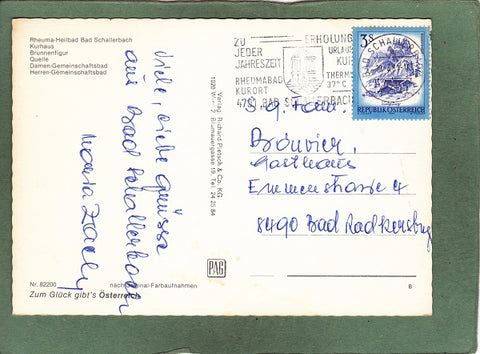 Rheuma-Heilbad Bad Schallerbach
Kurhaus
Brunnenfigur
Quelle
Damen-Gemeinschaftsbad
Herren-Gemeinschaftsbad
viele, viele Grüsse
aus Bad Schallerbach
Maria
Nr. 82200
nach Original-Farbaufnahmen
Zum Glück gibt's Österreich
Verlag Richard Pietsch & Co. KG
1020 Wien 2, Blumauergasse 19, Tel. 24 25 84
PAG
ZU
JEDER
JAHRESZEIT
RHEUMABAD
KURORT
4701 BAD SCHALLERBACH
ERHOLUNG
URLAUB
KUR
THERME
37°C
BAD SCHALLERBACH
3 S
REPUBLIK ÖSTERREICH
Fam.
Gasthaus
Emmenstrasse 4
8490 Bad Radkersburg
B